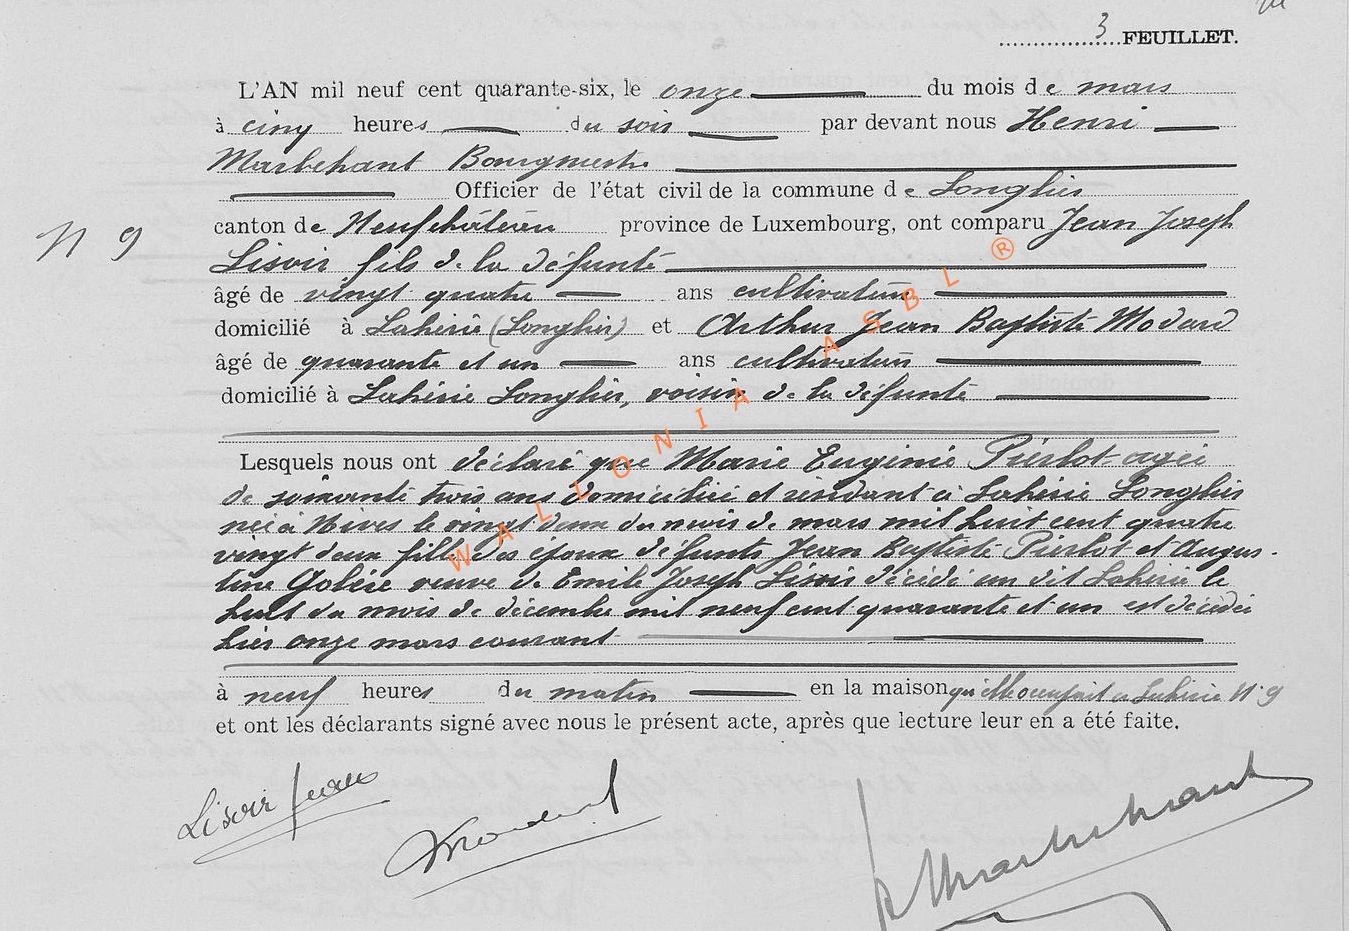 3 FEUILLET.
L'AN mil neuf cent quarante-six, le onze du mois de mars
à cinq heures du soir par devant nous Henri
Marbehant Bourgmestre
Officier de l'état civil de la commune de Longlier
canton de Neufchâteau province de Luxembourg, ont comparu Jean Joseph
N 9
Lisoir fils de la défunte
âgé de vingt quatre ans cultivateur
domicilié à Lahérie (Longlier) et Arthur Jean Baptiste Modard
âgé de quarante et un ans cultivateur
domicilié à Lahérie Longlier, voisin de la défunte
Lesquels nous ont déclaré que Marie Eugénie Pierlot agée
de soixante trois ans domiciliée et résidant à Lahérie Longlier
née à Nives le vingt deux du mois de mars mil huit cent quatre
vingt deux fille des époux défunts Jean Baptiste Pierlot et Augus-
tine veuve de Emile Joseph Lisoir décédé au dit Lahérie le
huit du mois de décembre mil neuf cent quarante et un est décédée
hier onze mars courant
à neuf heures du matin en la maison qu'elle occupait à Lahérie N° 9
et ont les déclarants signé avec nous le présent acte, après que lecture leur en a été faite.
Lisoir Jean
Modard
Marbehant
WALLONIA ASBL ®